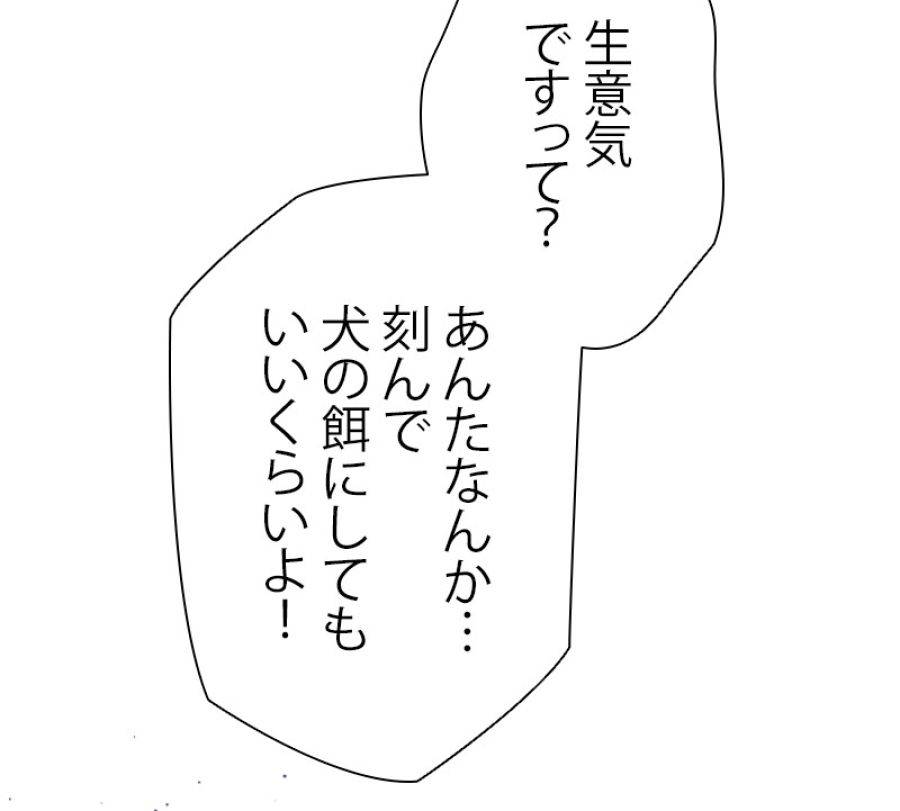 生意気
ですって?
あんたなんか…
刻んで
犬の餌にしても
いいくらいよ!